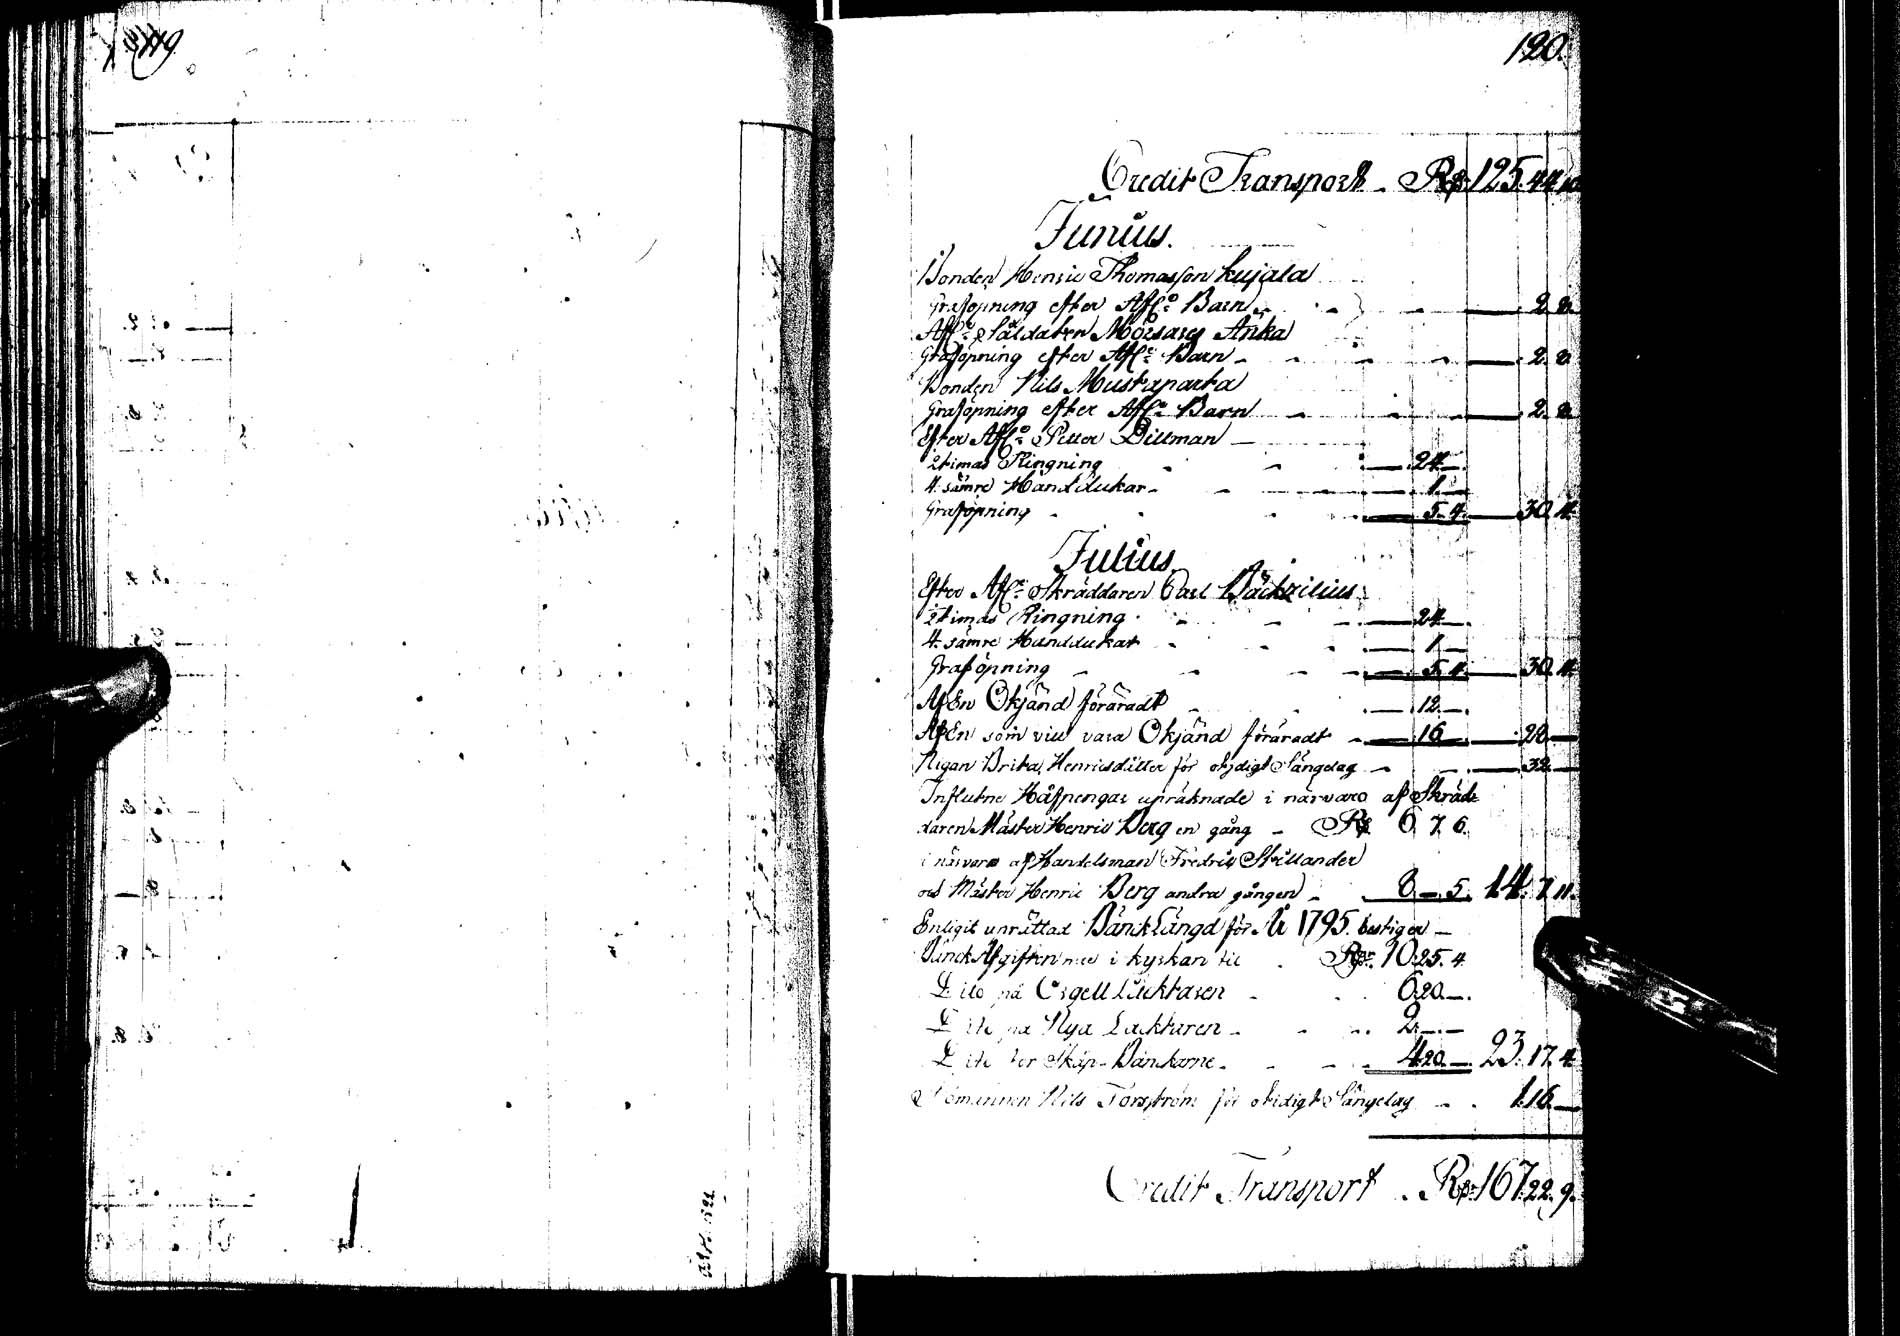 119
120.
Credit Transport - Rd: 125. 44. 10
Junius.
Bonden Henric Thomasson Kujala
Graföpning efter Afl: Barn - - - 2. 8.
Afl: Såldaten Anka
Graföpning efter Afl: Barn - - - 2. 8.
Bonden Nils Mustaparta
Graföpning efter Afl: Barn - - - 2. 8.
Efter Afl: Petter Dittman -
2 timas Ringning - - - 24. -
4. sämre Handdukar - - - 1. -
Graföpning - - - 5. 4. - 30. 4.
Julius.
Efter Afl: Skräddaren Carl Bäckzilius
2 timas Ringning - - - 24. -
4. sämre Handdukar - - - 1. -
Graföpning - - - 5. 4. - 30. 4.
Af En Okjänd föräradt - - 12. -
Af En som vill vara Okjänd föräradt - 16. - 28. -
Pigan Brita Henricsdotter för otjdigt Sängelag - - 32. -
Influtne Håfpengar upräknade i närvaro af Skräd-
daren Mäster Henric Berg en gång - Rd 6. 7. 6.
i närvaro af Handelsman Fredric Skillander
och Mäster Henric Berg andra gången - 8. - 5. 14. 7. 11.
Enligit uprättad Bänck Längd för År 1795. bestiger -
Bänck Afgiften nere i kyrkan til - Rd: 10. 25. 4.
Dito på Orgell Läcktaren - - 6. 20. -
Dito på Nya Läcktaren - - 2. - -
Dito för Skåp-Bänckarne - - 4. 20. - 23. 17. 4.
Nils Forsström för otidigt Sängelag - - 1. 16. -
Credit Transport - Rd: 167. 22. 9.